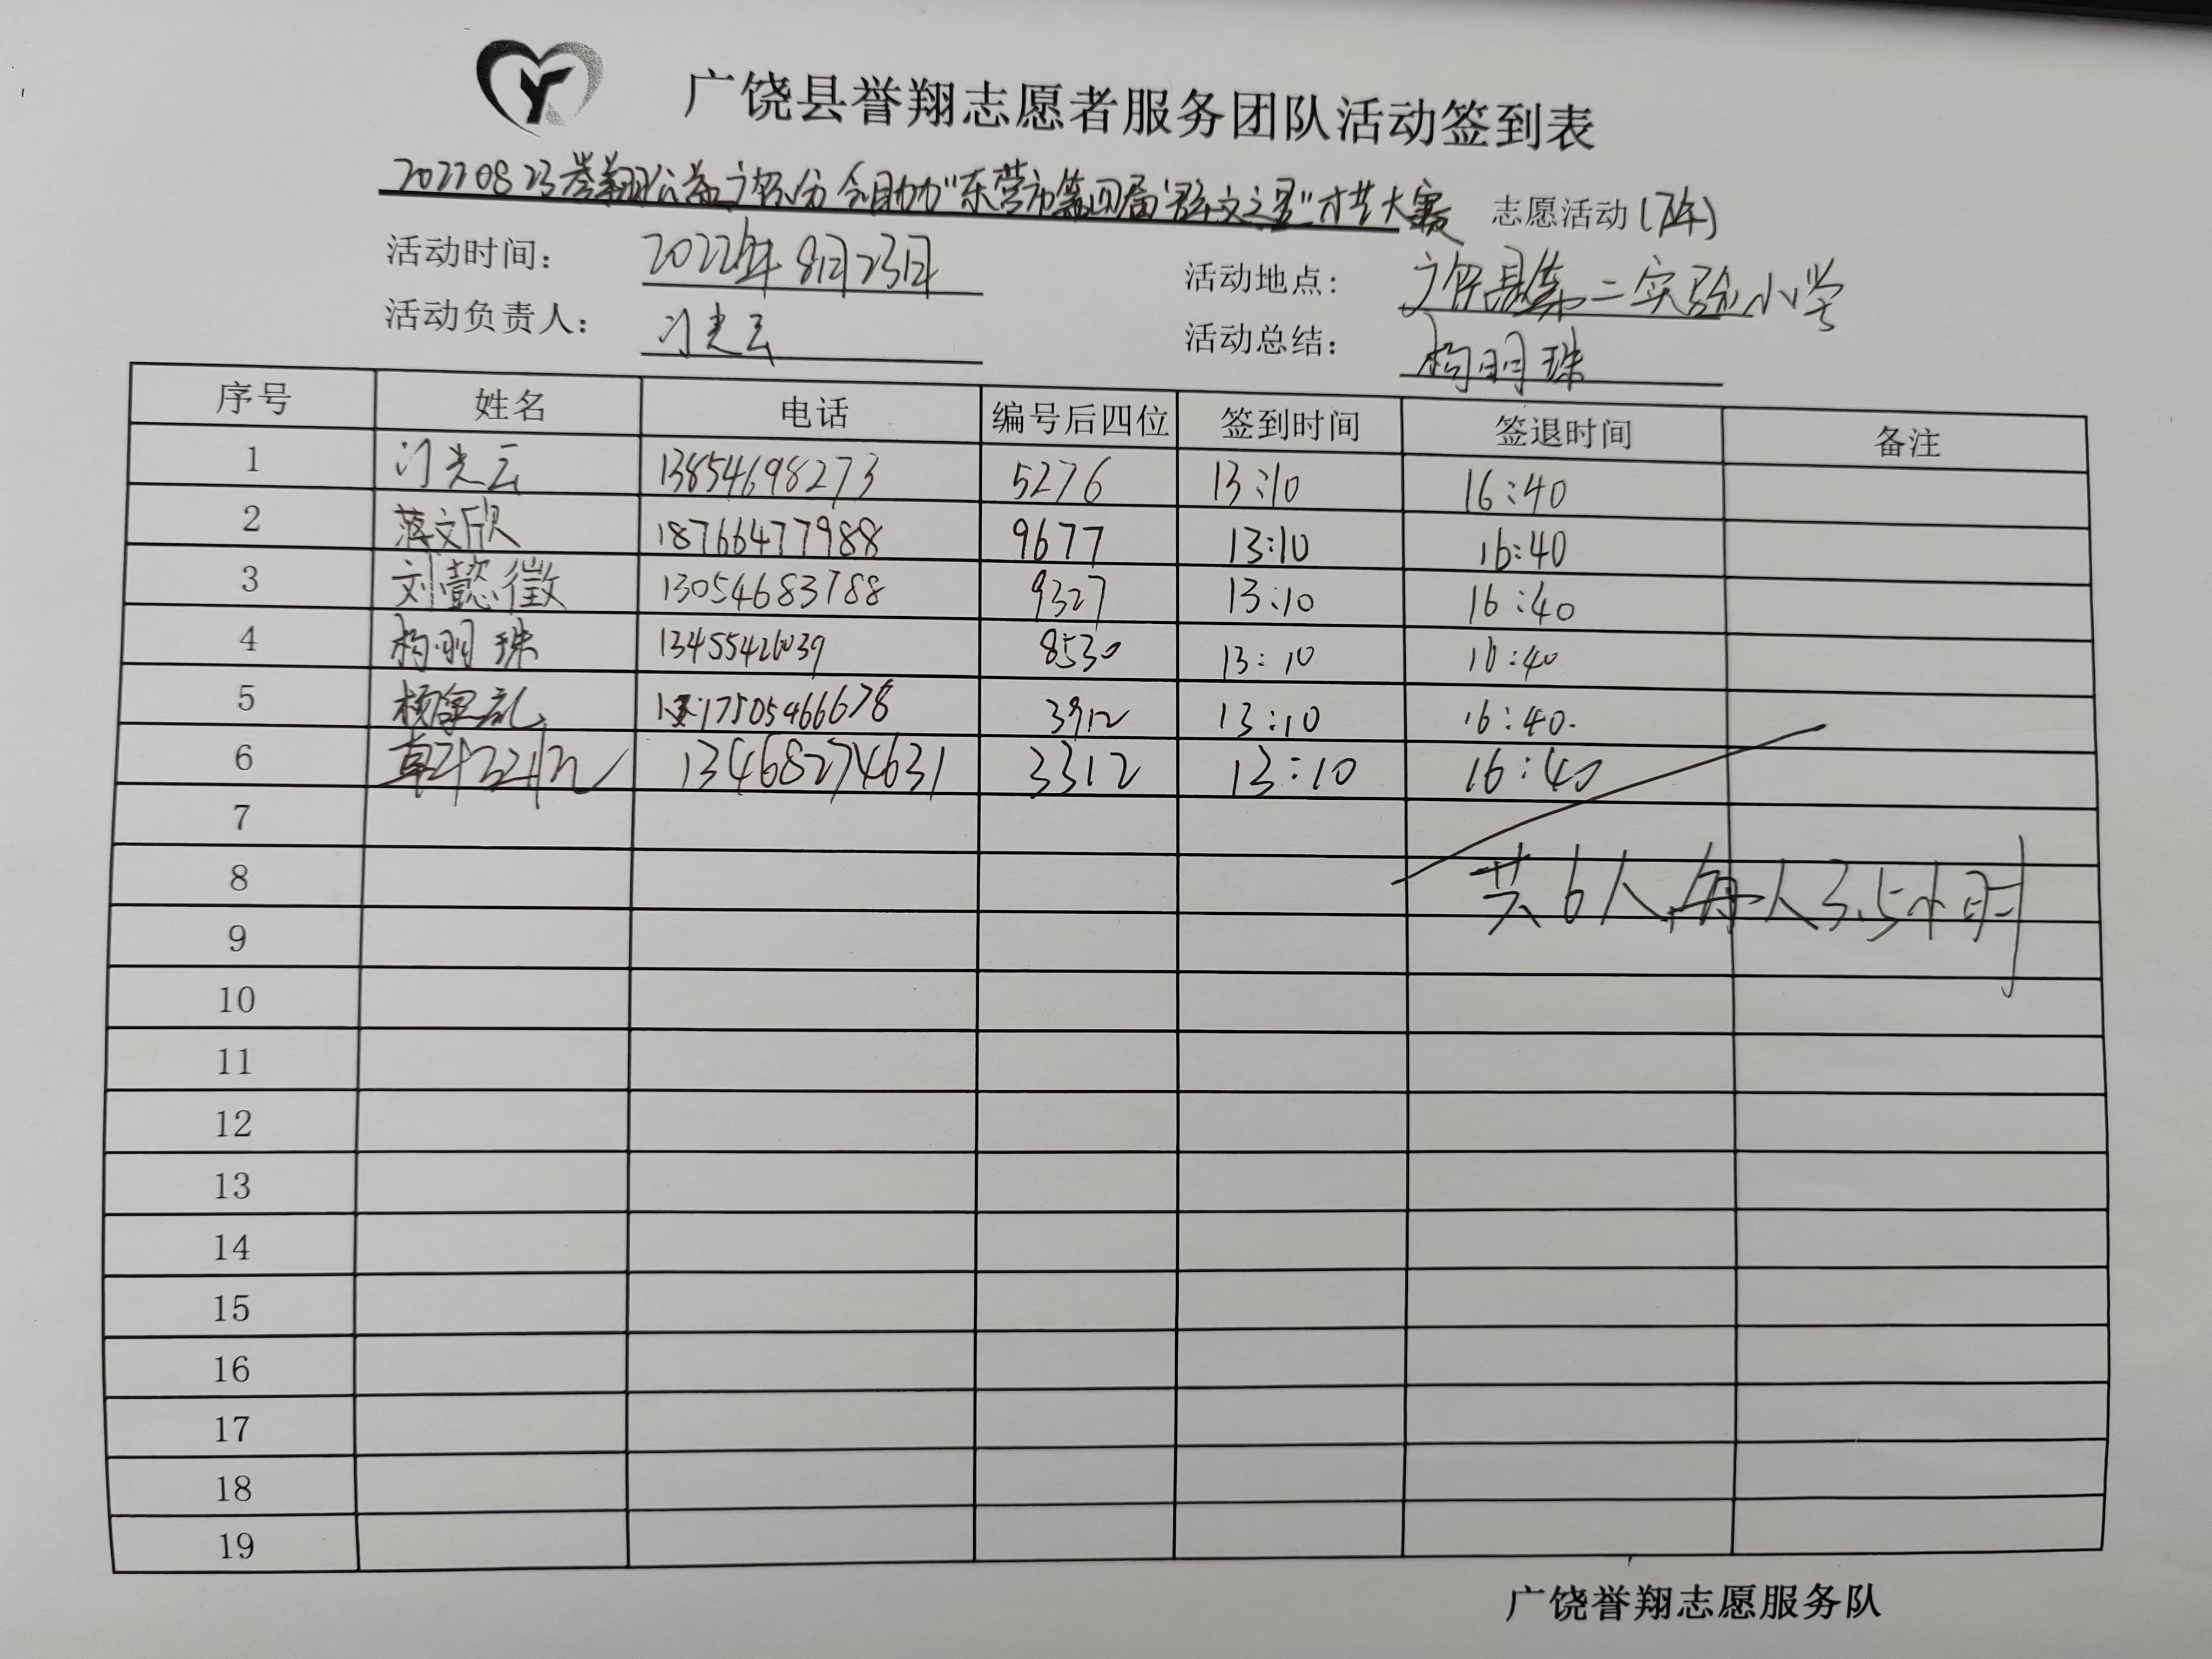 广饶县誉翔志愿者服务团队活动签到表
20220823誉翔公益广饶分会助力"东营市第四届'群文之星'"才艺大赛 志愿活动(下午)
活动时间: 2022年8月23日 活动地点: 广饶县第二实验小学
活动负责人: 门光云 活动总结: 杨明珠
序号 姓名 电话 编号后四位 签到时间 签退时间 备注
1 门光云 13854698273 5276 13:10 16:40
2 蒋文欣 18766477988 9677 13:10 16:40
3 刘懿徵 13054683788 9327 13:10 16:40
4 杨明珠 13455426039 8530 13:10 16:40
5 17505466678 3912 13:10 16:40
6 13468274631 3312 13:10 16:40
7
8
共6人,每人3.5小时
9
10
11
12
13
14
15
16
17
18
19
广饶誉翔志愿服务队